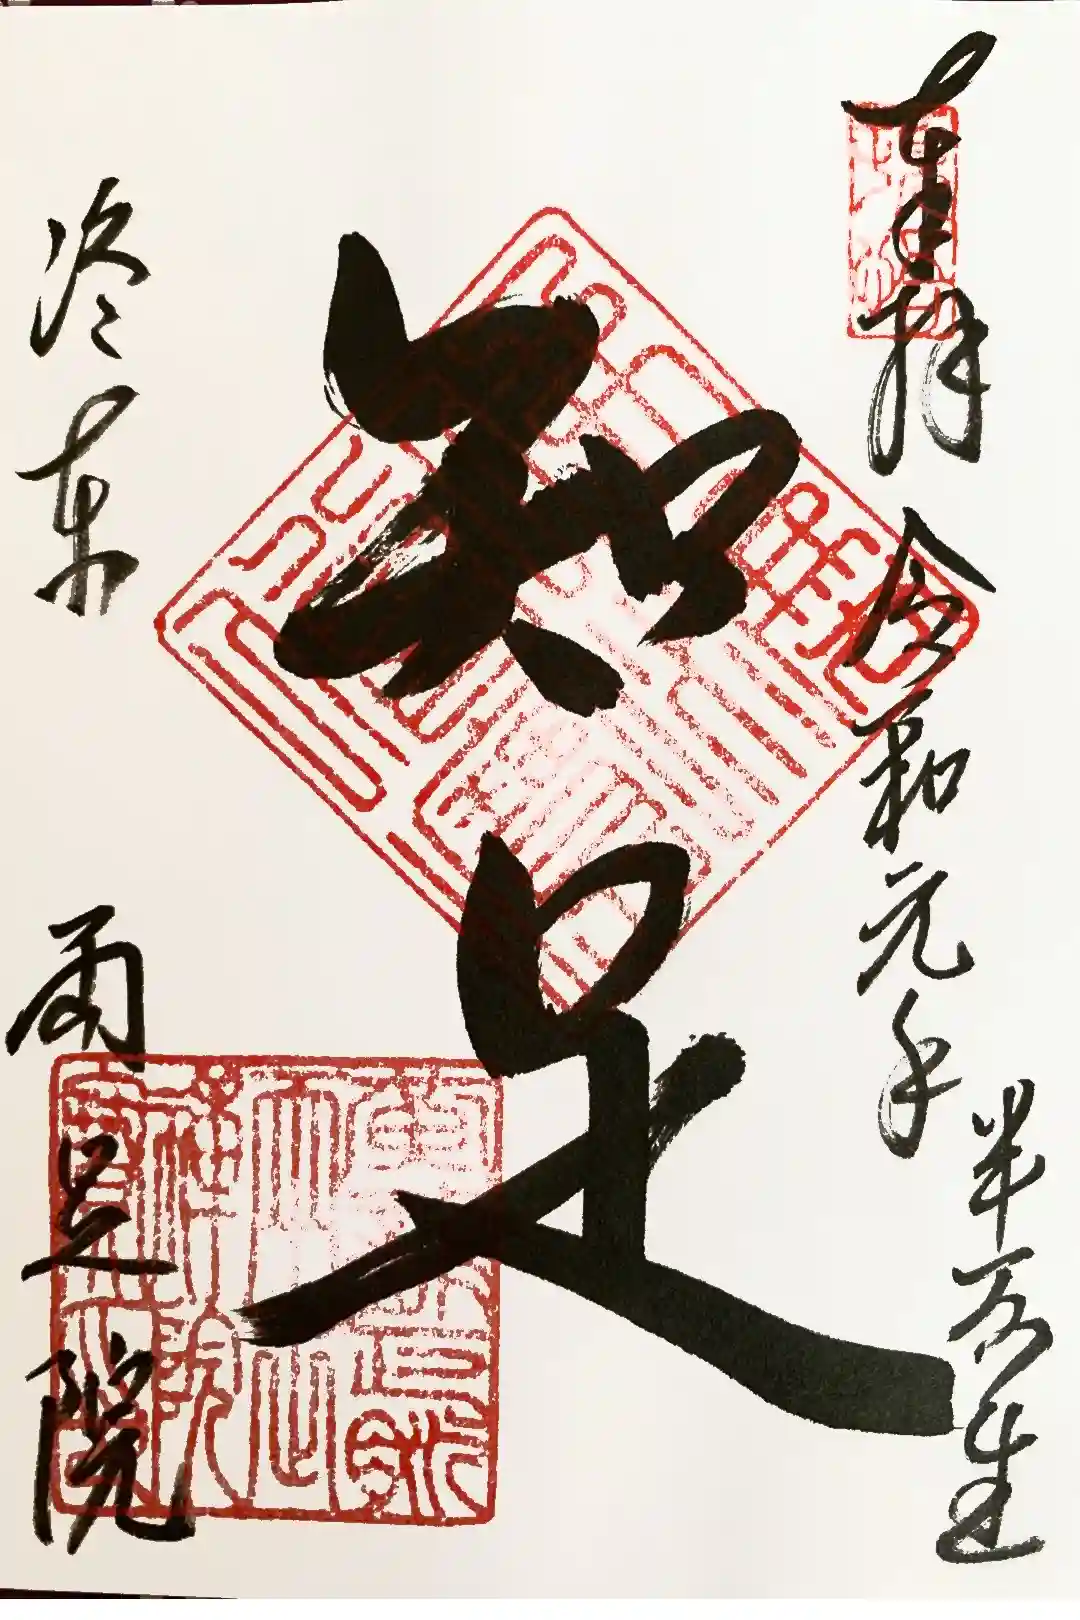 奉拝 令和元年
半夏生
知足
洛東 両足院